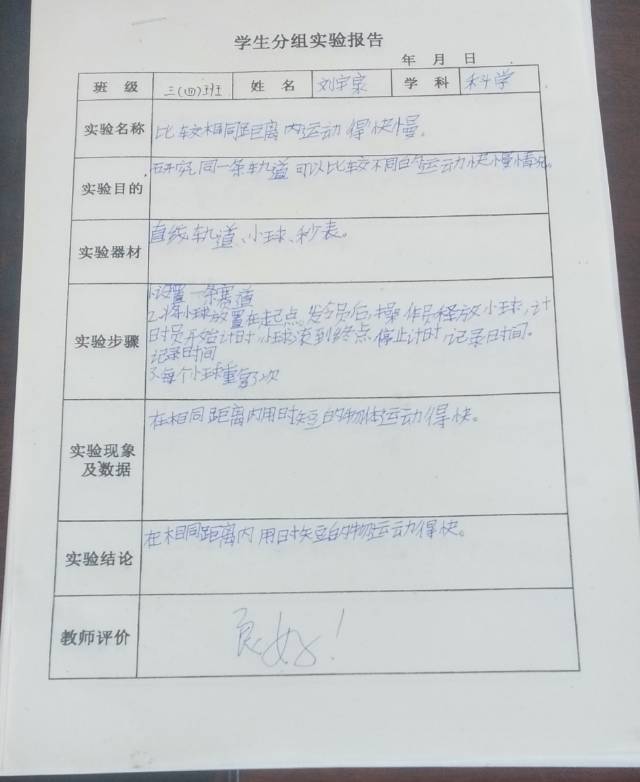 学生分组实验报告
年 月 日
班 级 三(四)班 姓 名 刘宇宸 学 科 科学
实验名称 比较相同距离内运动得快慢。
实验目的 研究同一条轨道可以比较不同的运动快慢情况
实验器材 直线轨道、小球、秒表。
1.设置一条赛道
2.将小球放置在起点,发令员后,操作员释放小球,计
实验步骤 时员开始计时,小球滚到终点停止计时,记录时间。
记录时间
3.每个小球重复3次
在相同距离内用时短的物体运动得快。
实验现象
及数据
在相同距离内用时短的物运动得快。
实验结论
教师评价 良好!